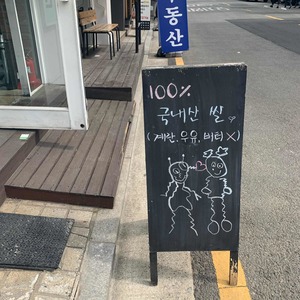 부동산
100%
국내산 쌀
(계란, 우유, 버터 X)